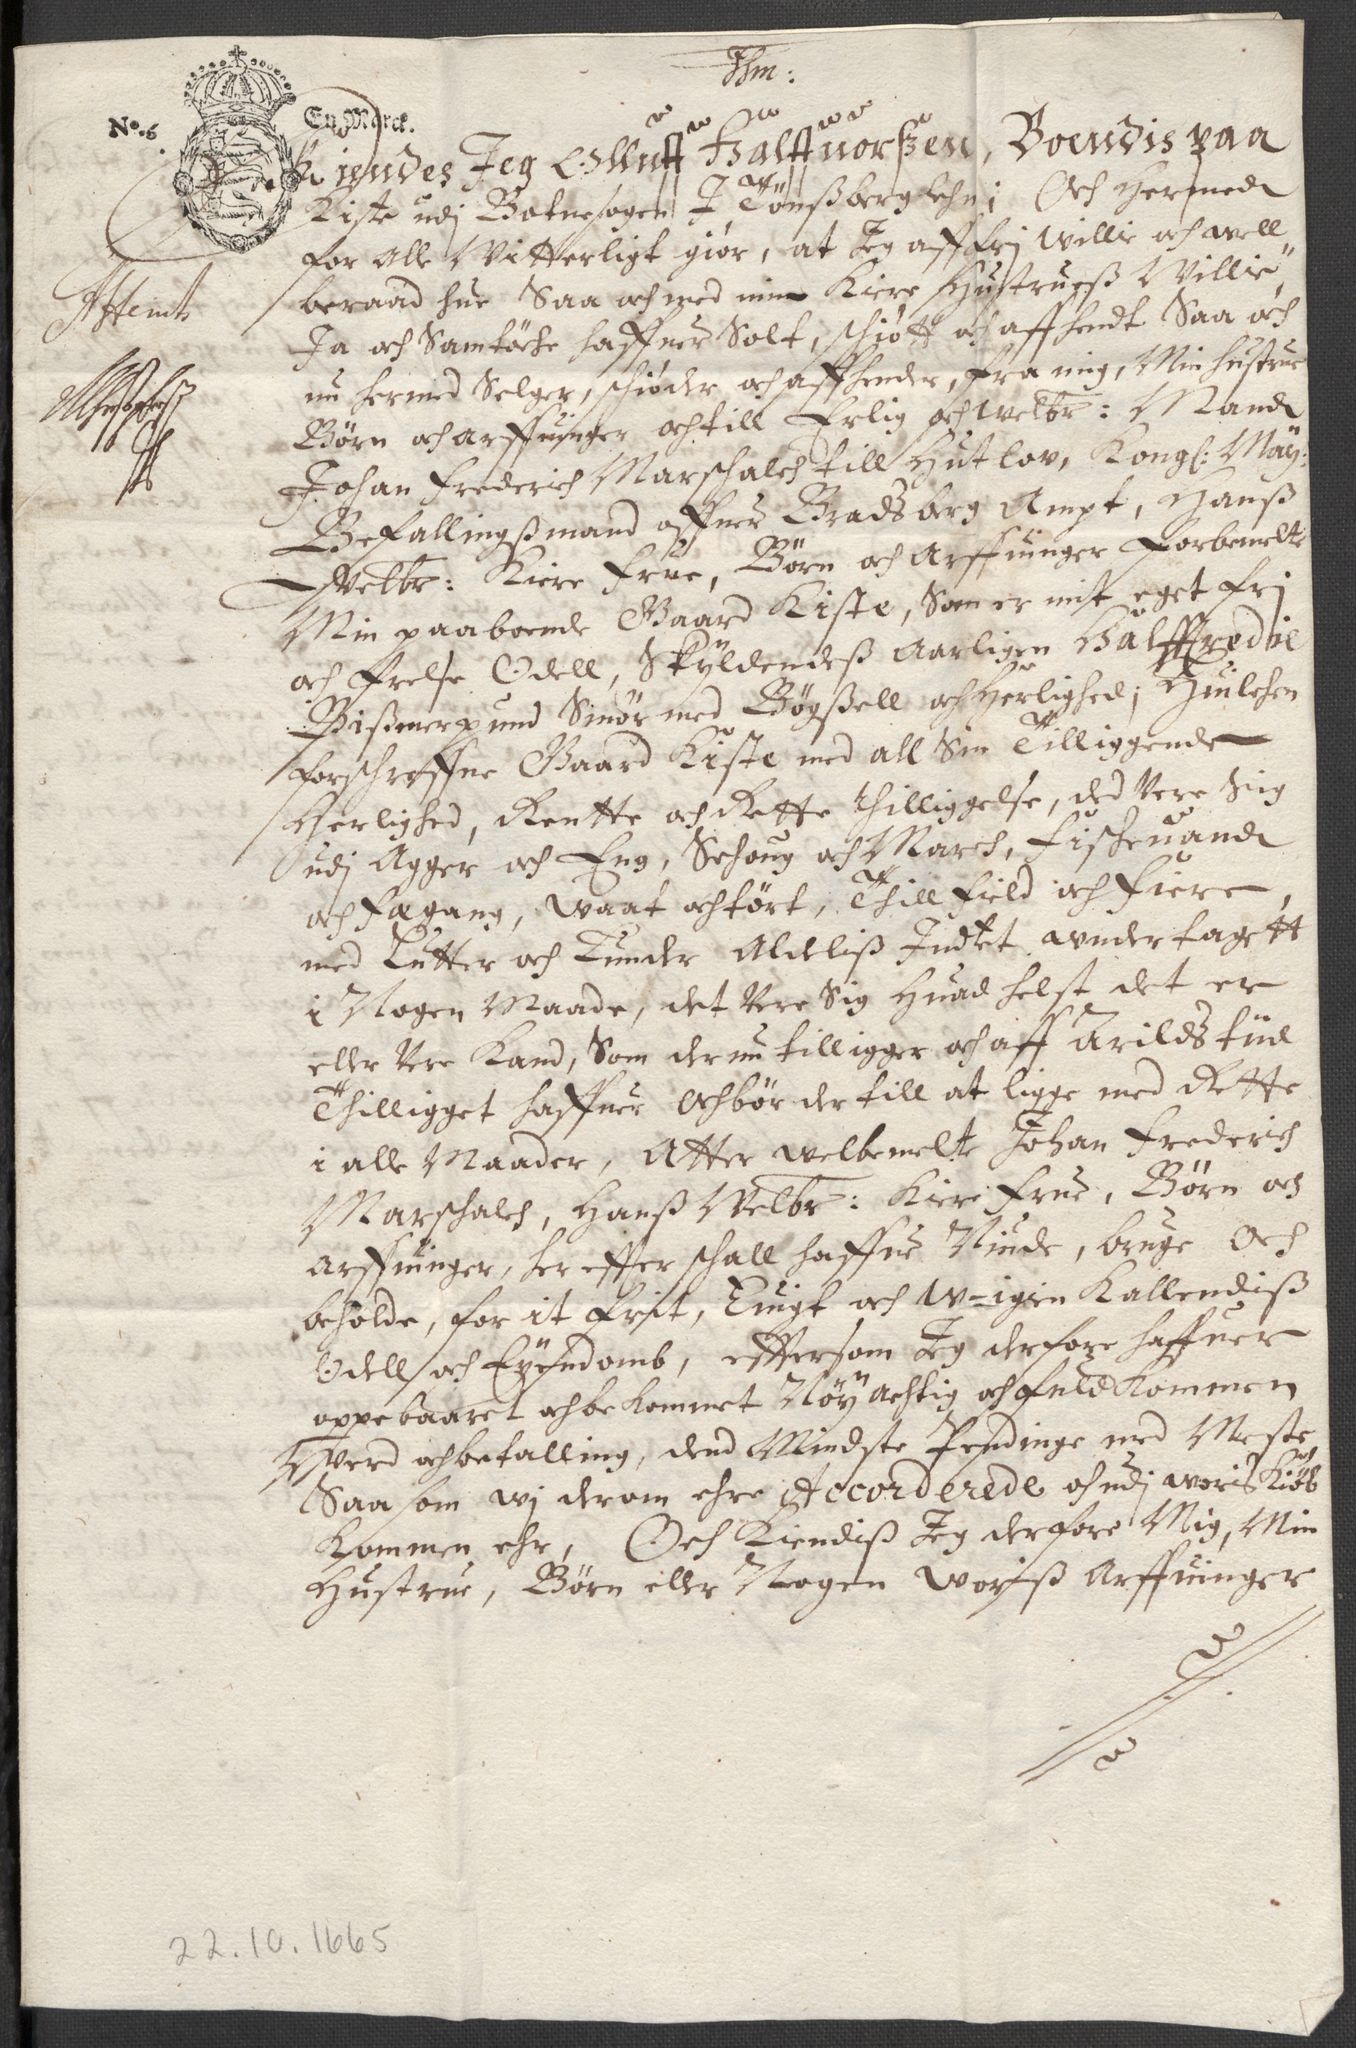 Jhm:
No. 6. En Marck.
Kiendes Jeg Olluff Halffuorßen, Boendis paa
Kiste udj Botnesogen J Tönßberg lehn; Och hermed
for alle Witterligt giör, at Jeg aff frj Willie och well
beraad hue Saa och med min Kiere Hustrueß Willie,
Attemt
Ja och Samtöche haffuer Solt, schiött och affhendt Saa och
nu hermed Selger, schiöder och affhender, fra mig, Min hustrue
Börn och arffuinger och till Erlig och welbr: Mand
Johan Frederich Marschalch till Hutlov, Kongl: Maÿ:
Befallingßmand offuer Bradsberg Ampt, Hanß
Welbr: Kiere Frue, Börn och Arffuinger forbemelte
Min paaboende Gaard Kiste, Som er mit eget frj
och frelse Odell, Skÿldendeß Aarligen Halffredie
Bißmerpund Smör med Bögßell och herlighed; Huilchen
forschreffne Gaard Kiste med all Sin Tilliggende
Herlighed, Rentte och Rette thilliggelse, ded vere Sig
udj Agger och Eng, Schoug och March, Fischeuand
och Fægang, Waat och tört, Thill Field och Fiere,
med Lutter och Lunder Aldeliß Indtet undertagett
i Nogen Maade, det vere Sig huad helst det er
eller vere Kand, Som der nu tilligger och aff Arilds tiid
Thilligget haffuer och bör der till at ligge med Rette
i alle Maader, Atter welbemelte Johan Frederich
Marschalch, Hanß Welbr: Kiere Frue, Börn och
Arffuinger, her effter schall haffue Niude, bruge Och
beholde, for it frit, Euigt och w-igien Kallendiß
Odell och Eÿendomb, effter som Jeg derfore haffuer
oppebaaret och bekommet Nöÿachtig och fuldkommen
Werd och betalling, dend Mindste Pendinge med Meste
Saa som wj derom ehre Accorderede och udj woris Kiöb
Kommen ehr, Och Kiendiß Jeg derfore Mig, Min
Hustrue, Börn eller Nogen woriß Arffuinger
22.10.1665